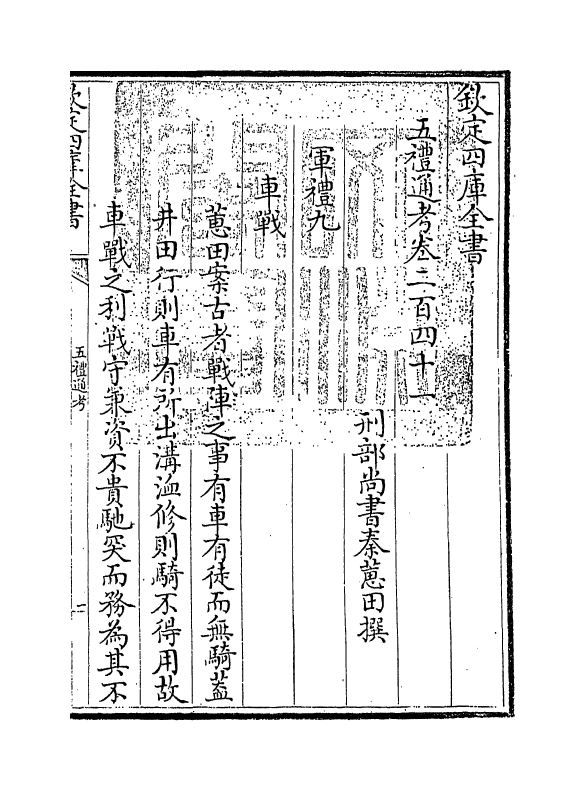 欽定四庫全書
五禮通考卷二百四十一
刑部尚書秦蕙田撰
軍禮九
車戰
蕙田案古者戰陣之事有車有徒而無騎蓋
井田行則車有所出溝洫修則騎不得用故
車戰之利戰守兼資不貴馳突而務為其不
欽定四庫全書
五禮通考